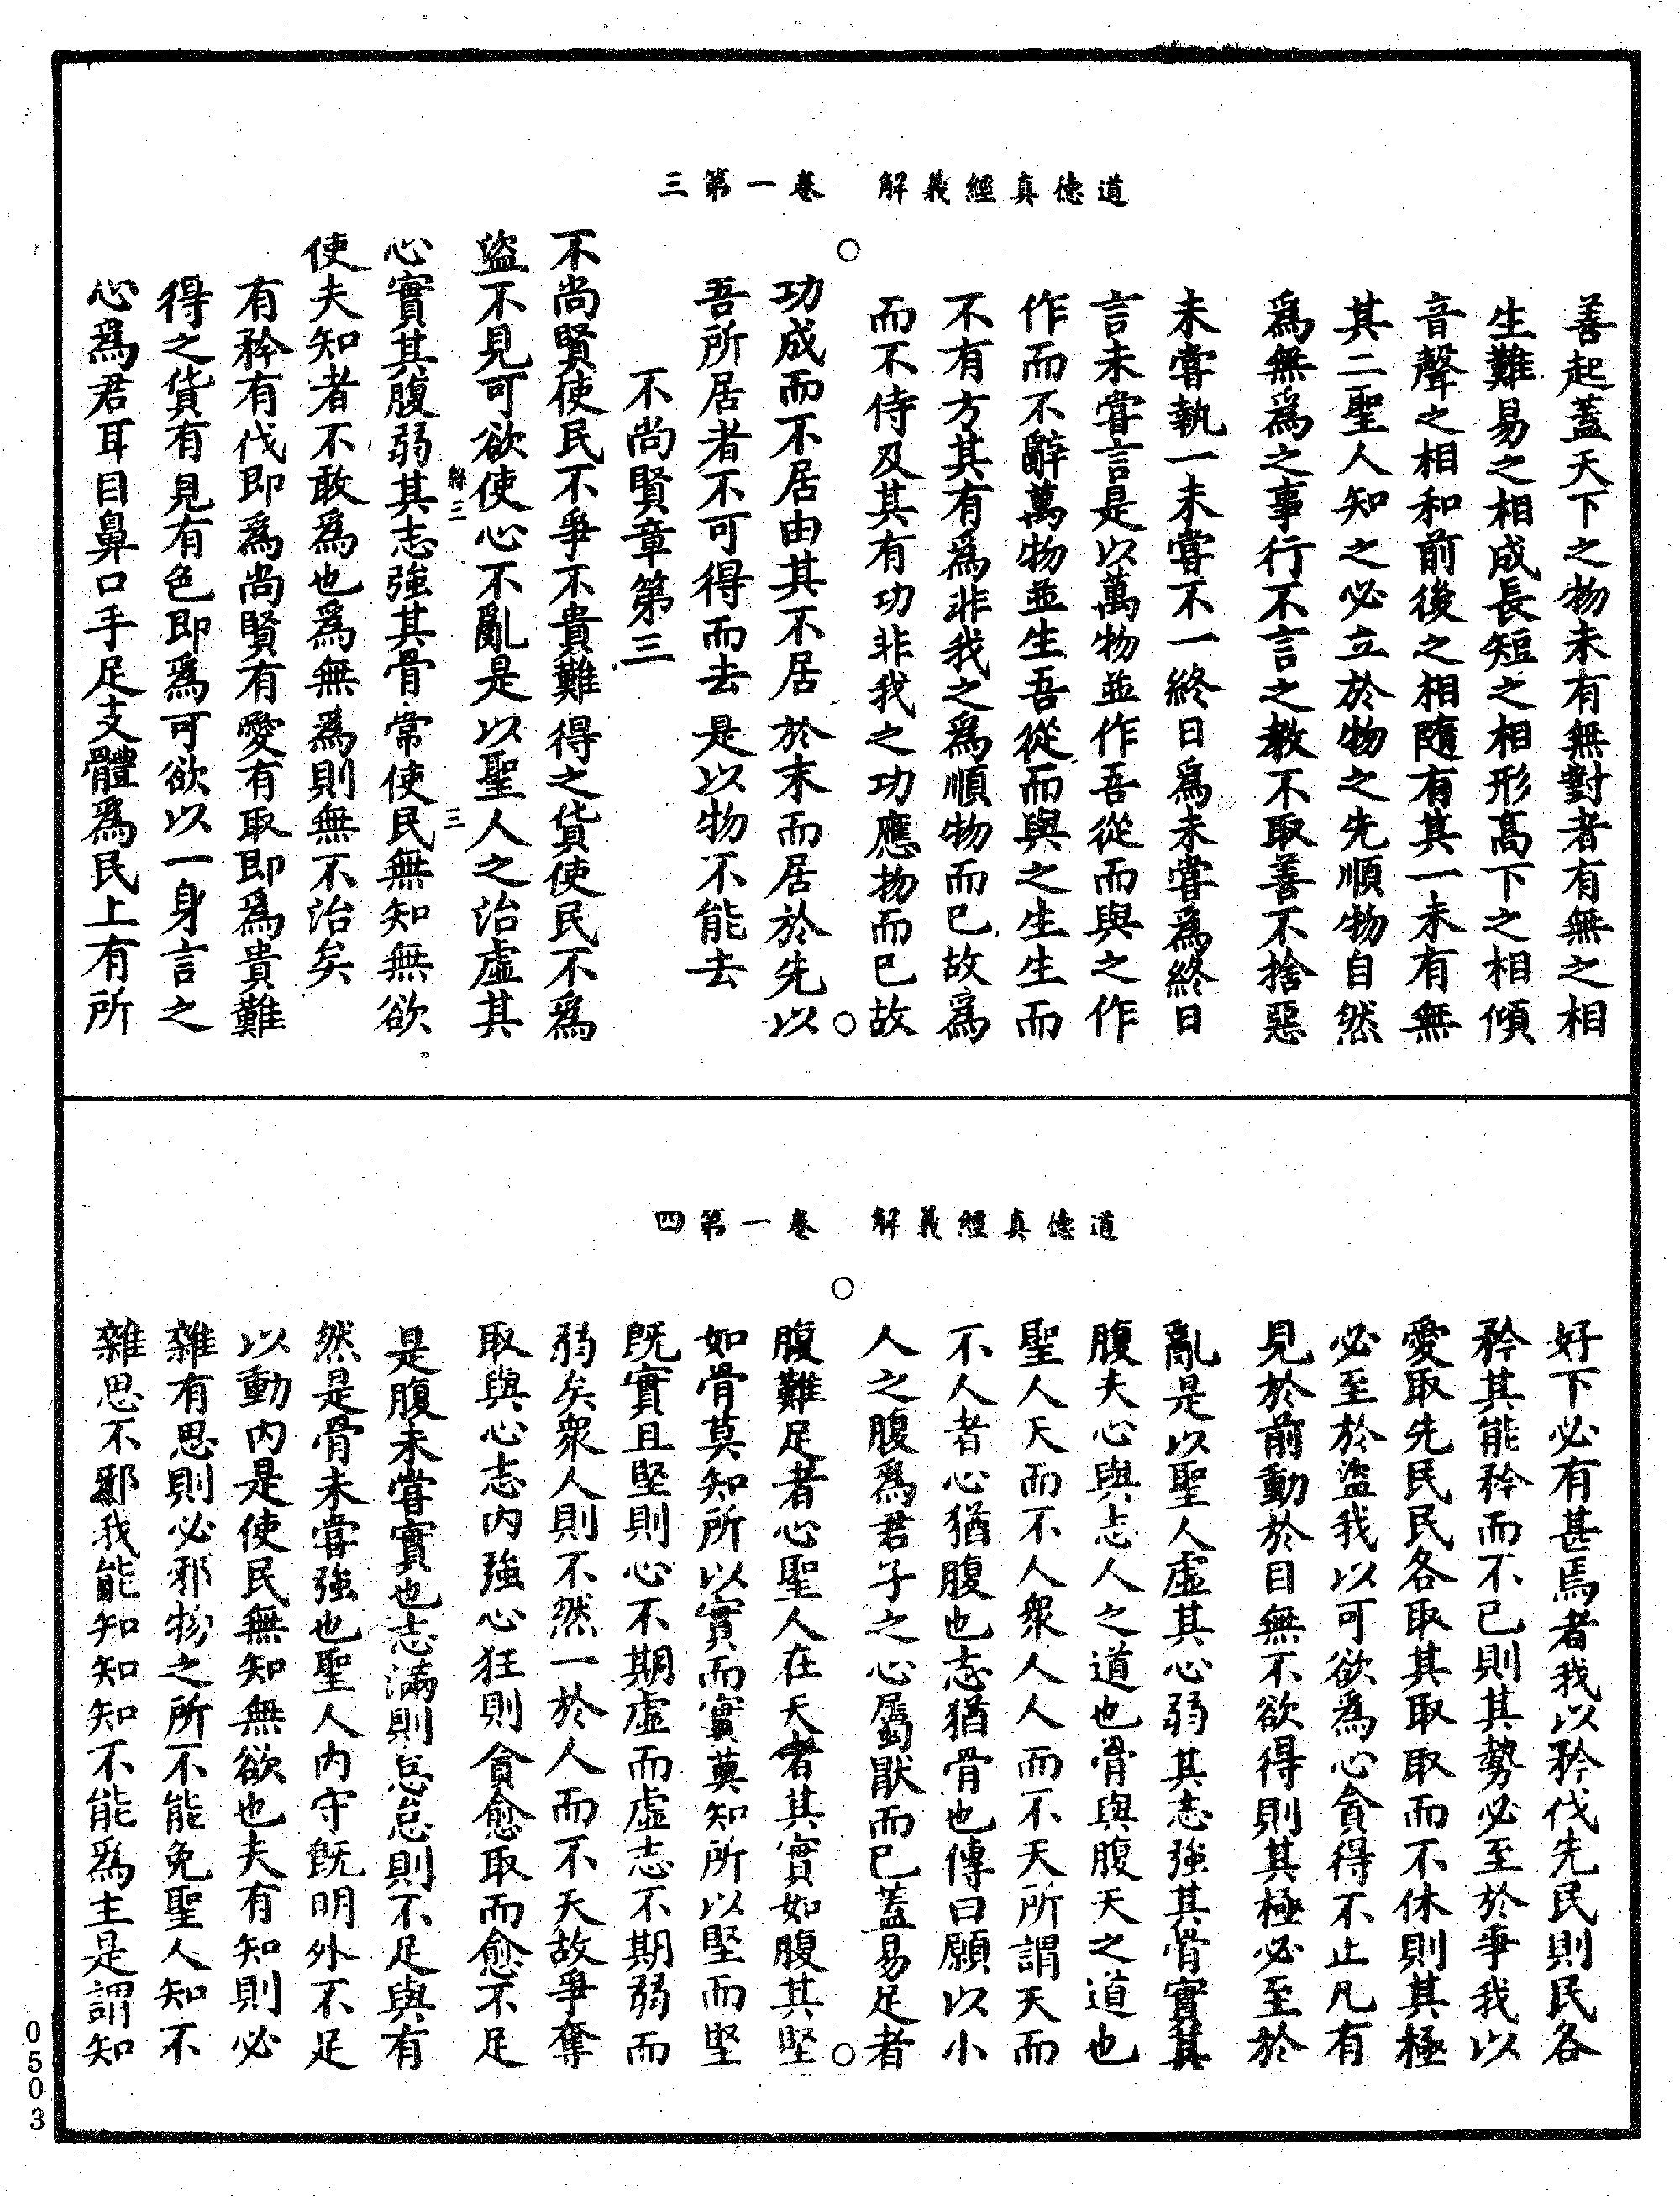 道德真經義解　卷一第三
善起蓋天下之物未有無對者有無之相
生難易之相成長短之相形高下之相傾
音聲之相和前後之相隨有其一未有無
其二聖人知之必立於物之先順物自然
爲無爲之事行不言之教不取善不捨惡
未嘗執一未嘗不一終日爲未嘗爲終日
言未嘗言是以萬物並作吾從而與之作
作而不辭萬物並生吾從而與之生生而
不有方其有爲非我之爲順物而已故爲
而不恃及其有功非我之功應物而已故
功成而不居由其不居於末而居於先以
吾所居者不可得而去是以物不能去
不尚賢章第三
不尚賢使民不爭不貴難得之貨使民不爲
盜不見可欲使心不亂是以聖人之治虛其
絲三　三
心實其腹弱其志強其骨常使民無知無欲
使夫知者不敢爲也爲無爲則無不治矣
有矜有伐即爲尚賢有愛有取即爲貴難
得之貨有見有色即爲可欲以一身言之
心爲君耳目鼻口手足支體爲民上有所
道德真經義解　卷一第四
好下必有甚焉者我以矜伐先民則民各
矜其能矜而不已則其勢必至於爭我以
愛取先民民各取其取取而不休則其極
必至於盜我以可欲爲心貪得不止凡有
見於前動於目無不欲得則其極必至於
亂是以聖人虛其心弱其志強其骨實其
腹夫心與志人之道也骨與腹天之道也
聖人天而不人衆人人而不天所謂天而
不人者心猶腹也志猶骨也傳曰願以小
人之腹爲君子之心屬猒而已蓋易足者
腹難足者心聖人在天者其實如腹其堅
如骨莫知所以實而實莫知所以堅而堅
旣實且堅則心不期虛而虛志不期弱而
弱矣衆人則不然一於人而不天故爭奪
取與心志內強心狂則貪愈取而愈不足
是腹未嘗實也志滿則怠怠則不足與有
然是骨未嘗強也聖人內守旣明外不足
以動內是使民無知無欲也夫有知則必
雜有思則必邪物之所不能免聖人知不
雜思不邪我能知知知不能爲主是謂知
0503